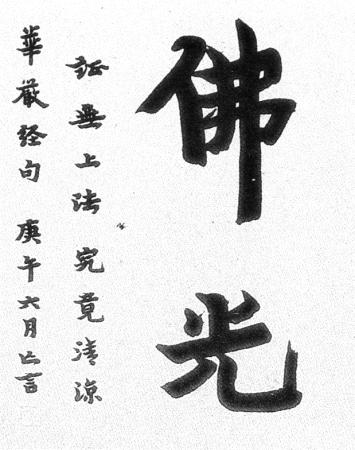 佛光
証無上法究竟清涼
華嚴经句 庚午六月